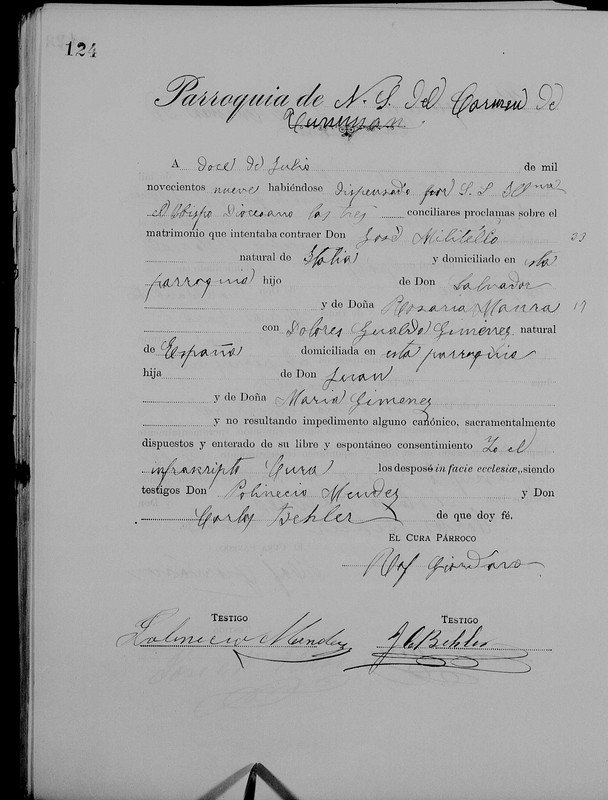 124
Parroquia de N. S. del Carmen de
A doce de Julio de mil
novecientos nueve habiéndose dispensado por S. S. Ilma
el Obispo Diocesano las tres conciliares proclamas sobre el
matrimonio que intentaba contraer Don José Militello 33
natural de Italia y domiciliado en esta
parroquia hijo de Don Salvador
y de Doña Rosaria Maura 17
con Dolores Gualda Gimenez natural
de España domiciliada en esta parroquia
hija de Don Juan
y de Doña Maria Gimenez
y no resultando impedimento alguno canónico, sacramentalmente
dispuestos y enterado de su libre y espontáneo consentimiento Yo el
infrascripto Cura los desposé in facie ecclesiæ, siendo
testigos Don Polinecio Mendez y Don
Carlos Behler de que doy fé.
El Cura Párroco
Raf Giordano
Testigo Testigo
Polinecio Mendez J C Behler